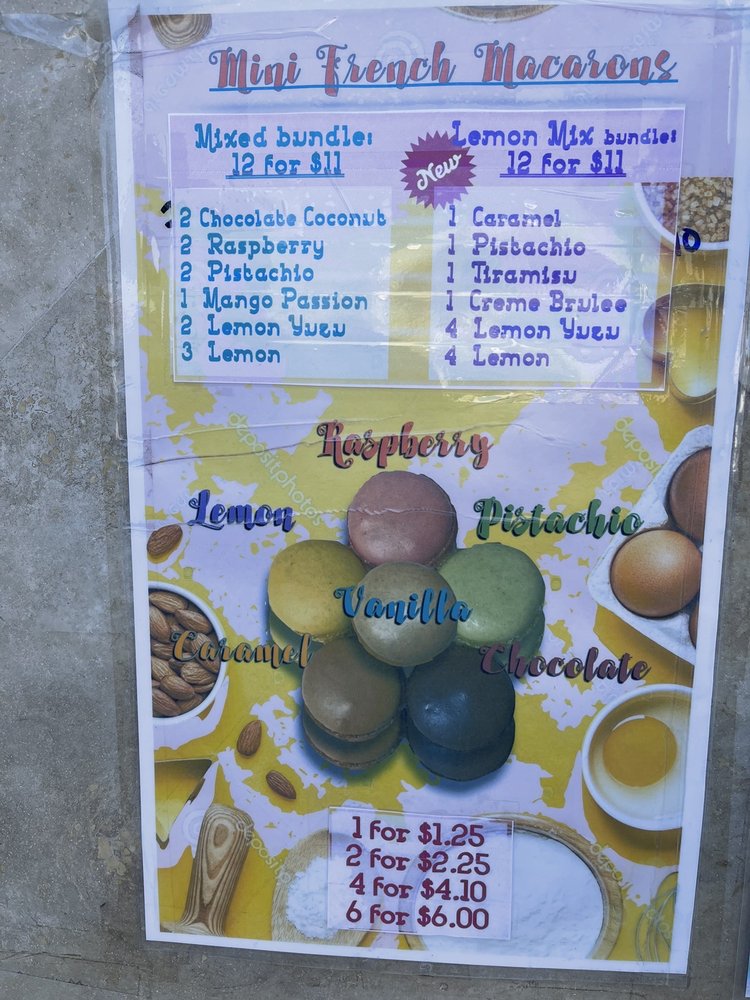 Mini French Macarons
Mixed bundle:
12 for $11
2 Chocolate Coconut
2 Raspberry
2 Pistachio
1 Mango Passion
2 Lemon Yuzu
3 Lemon
New
Lemon Mix bundle:
12 for $11
1 Caramel
1 Pistachio
1 Tiramisu
1 Creme Brulee
4 Lemon Yuzu
4 Lemon
Raspberry
Lemon
Pistachio
Vanilla
Caramel
Chocolate
1 for $1.25
2 for $2.25
4 for $4.10
6 for $6.00
depositphotos